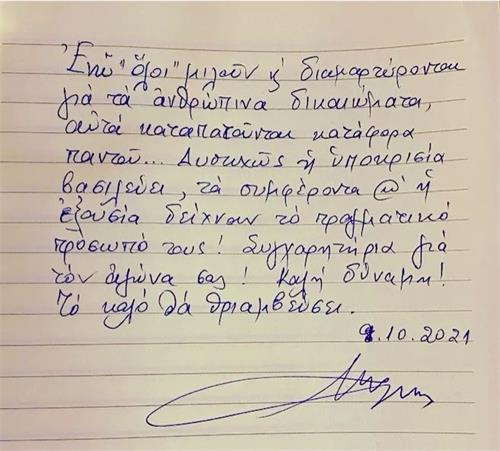 Ἐνῶ "ὅλοι" μιλοῦν κ' διαμαρτύρονται
γιά τά ἀνθρώπινα δικαιώματα,
αὐτά καταπατοῦνται κατάφορα
παντοῦ... Δυστυχῶς ἡ ὑποκρισία
βασιλεύει, τά συμφέροντα κ' ἡ
ἐξουσία δείχνουν τό πραγματικό
πρόσωπό τους! Συγχαρητήρια γιά
τόν ἀγώνα σας! Καλή δύναμη!
Τό καλό θά θριαμβεύσει.
9.10.2021